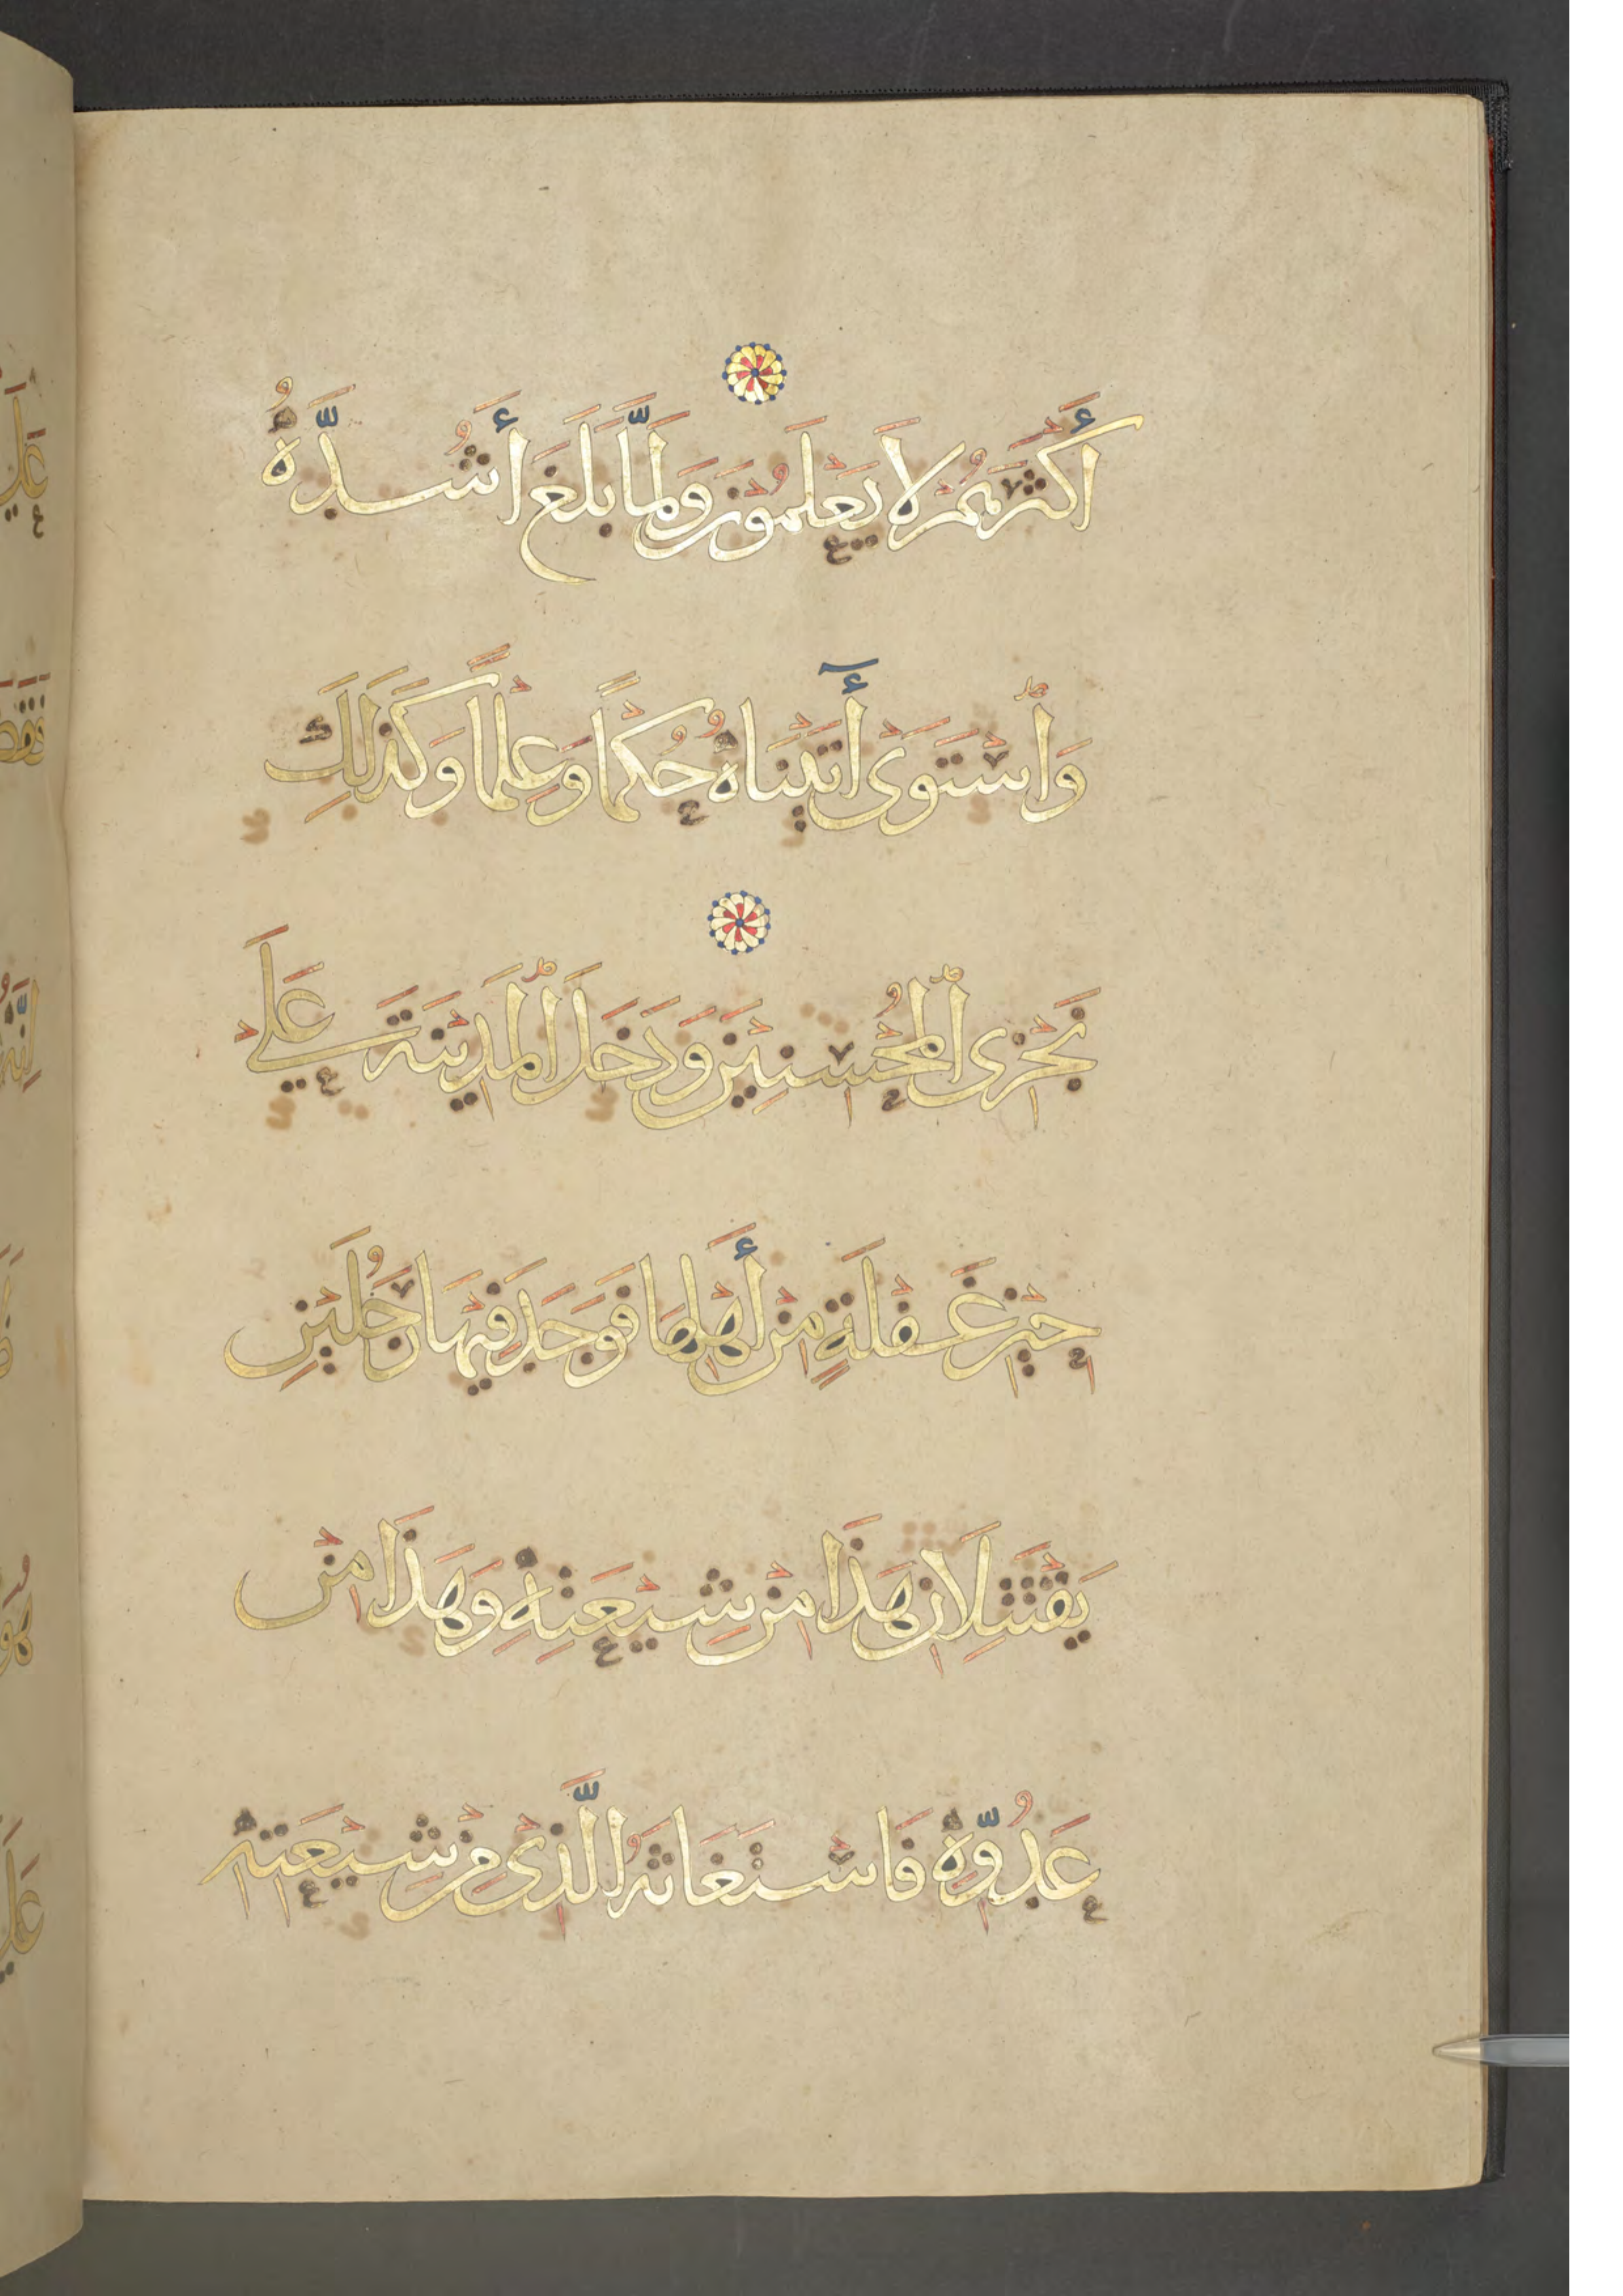 أَكْثَرَهُمْ لَا يَعْلَمُونَ وَلَمَّا بَلَغَ أَشُدَّهُ
وَاسْتَوَىٰ أَتَيْنَاهُ حُكْمًا وَعِلْمًا وَكَذَلِكَ
نَجْزِي الْمُحْسِنِينَ وَدَخَلَ الْمَدِينَةَ عَلَى
حِينِ غَفْلَةٍ مِنْ أَهْلِهَا فَوَجَدَ فِيهَا رَجُلَيْنِ
يَقْتَتِلَانِ هَذَا مِنْ شِيعَتِهِ وَهَذَا مِنْ
عَدُوِّهِ فَاسْتَغَاثَهُ الَّذِي مِنْ شِيعَتِهِ